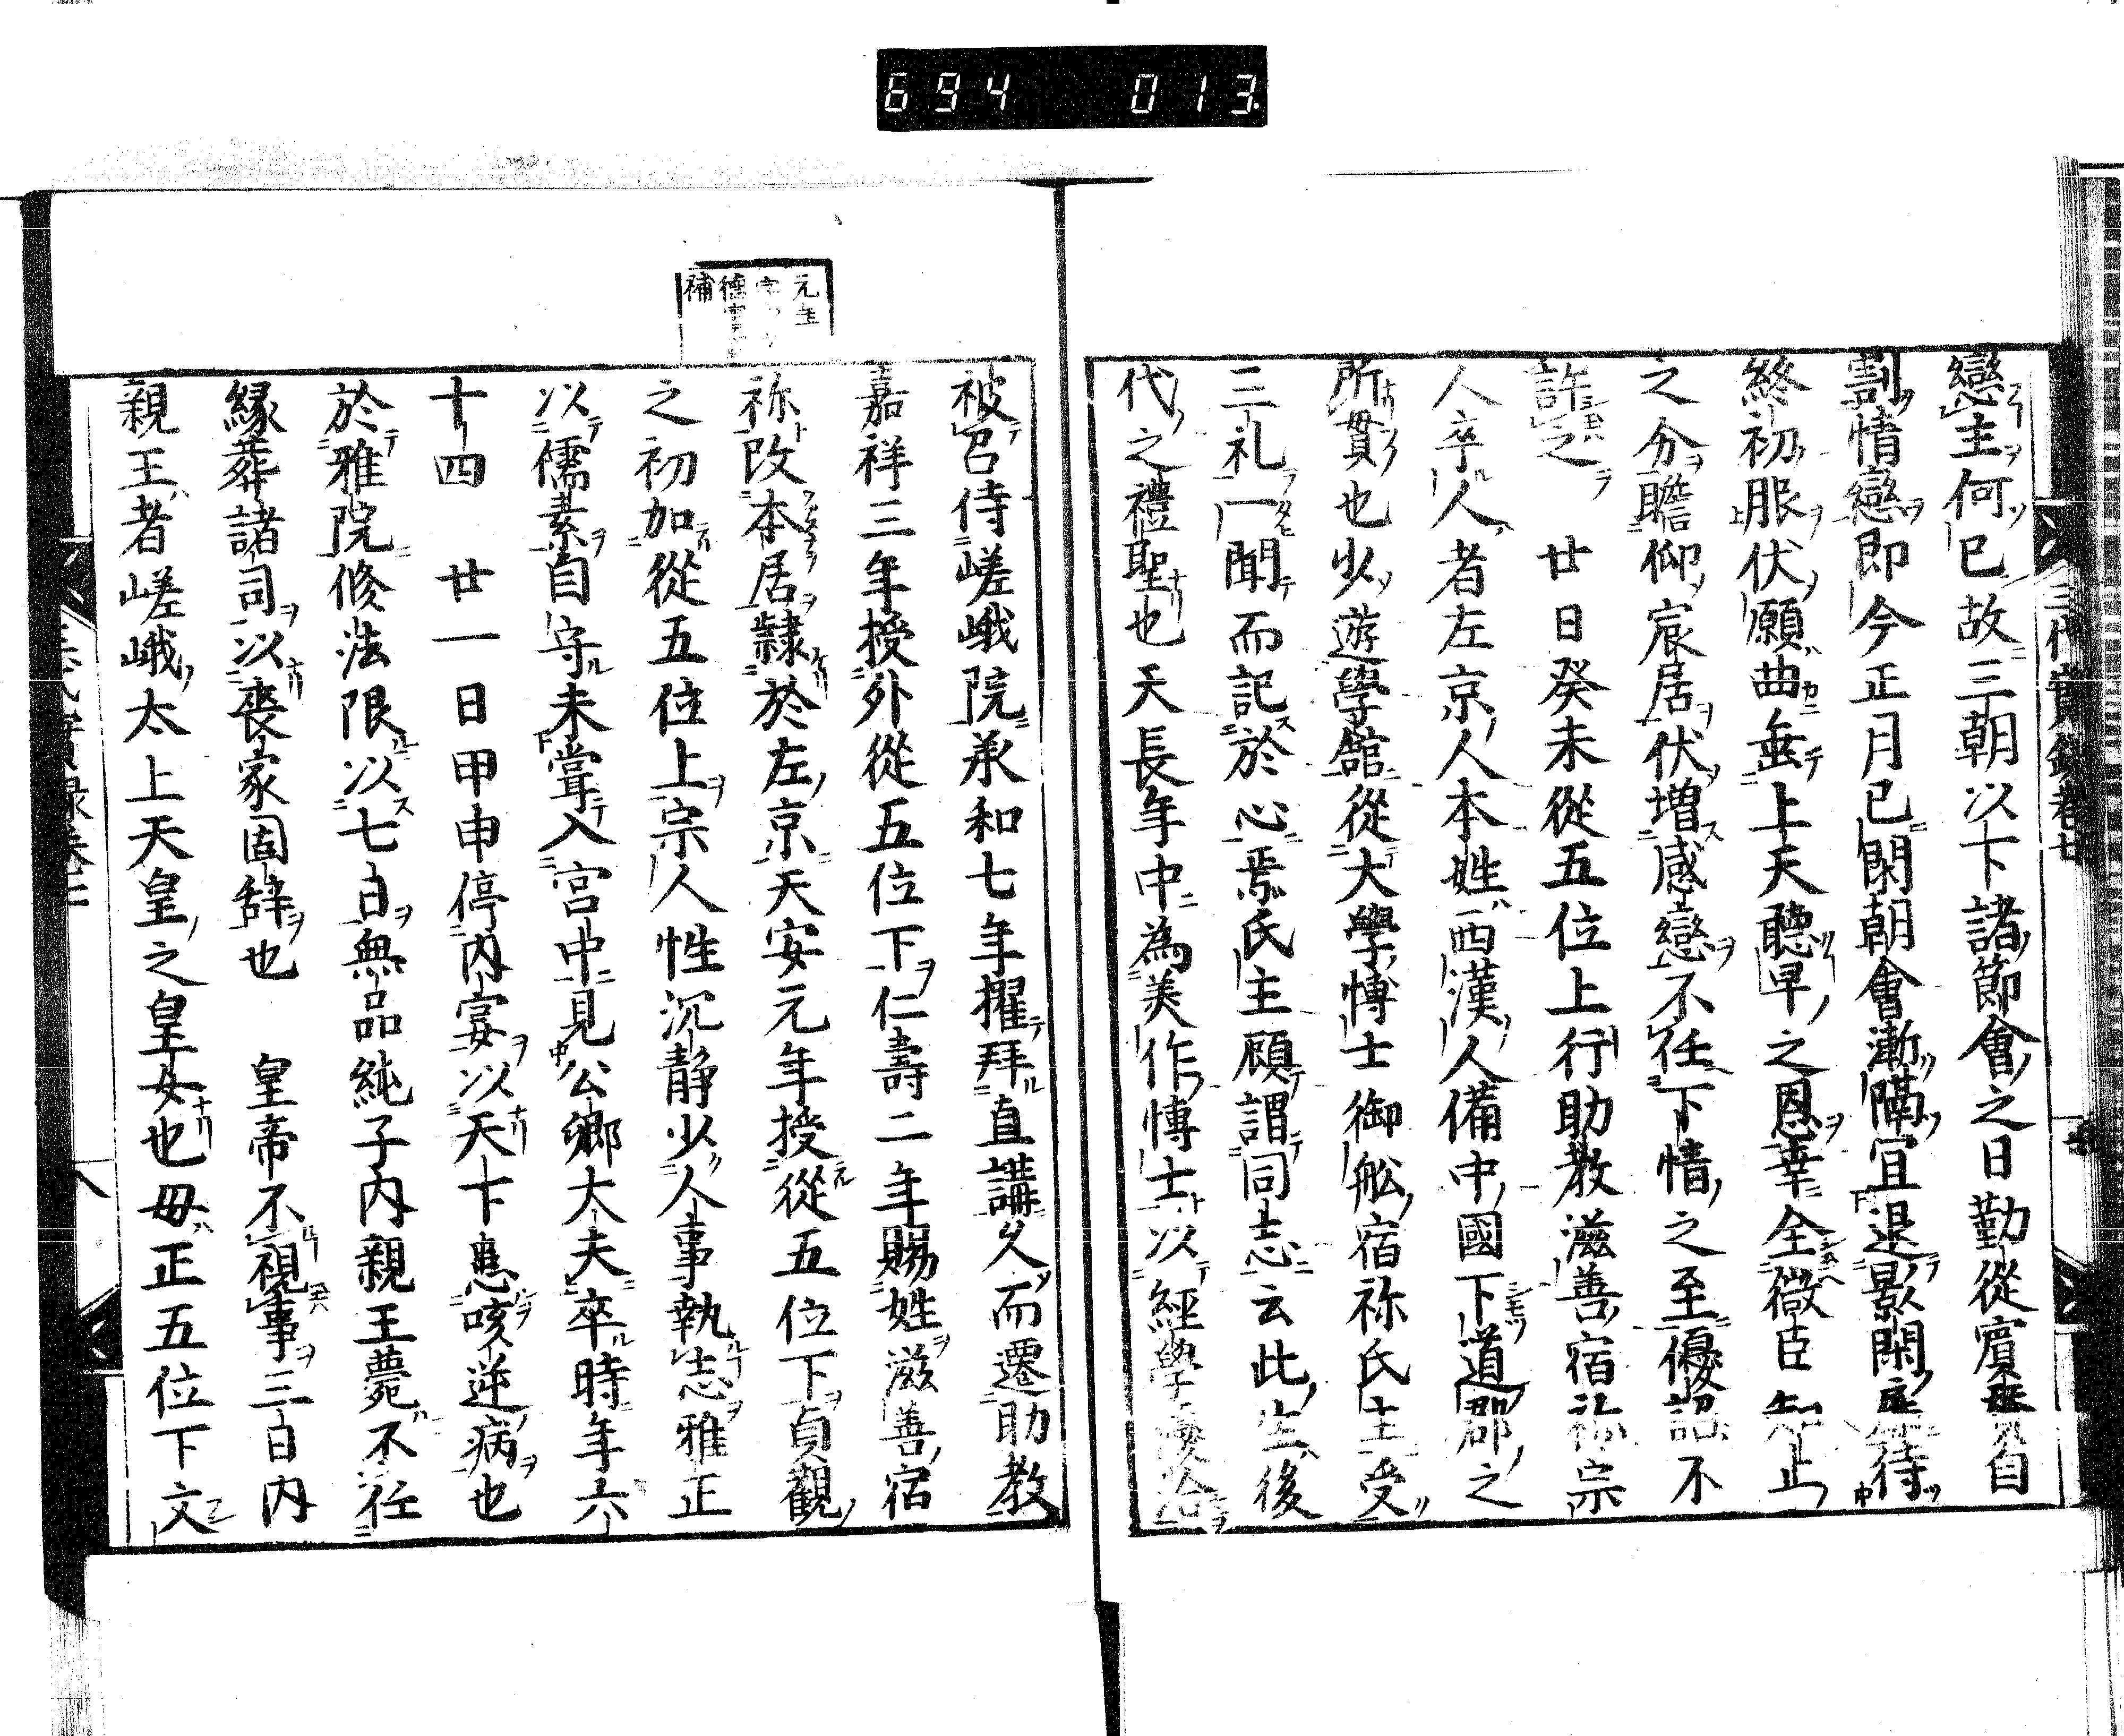 694 013
戀主何已故三朝以下諸節會之日勤從賓自
割情戀即今正月已閑朝會漸隔冝退影閑待
終初服伏願曲垂上天聽早之恩幸全微臣知止
之分瞻仰宸居伏增感戀不任下情之至優詔不
許之 廿日癸未從五位上行助教滋善宿祢宗
人卒人者左京人本姓西漢人備中國下道郡之
所貫也少遊學舘從大學博士御舩宿祢氏主受
三礼一聞而記於心焉氏主顧謂同志云此生後
代之禮聖也天長年中為美作博士以經學優
被召侍嵯峨院承和七年擢拜直講久而遷助教
嘉祥三年授外從五位下仁壽二年賜姓滋善宿
祢改本居隸於左京天安元年授從五位下貞觀
之初加從五位上宗人性沉静少人事執志雅正
以儒素自守未甞入宮中見公卿大夫卒時年六
十四 廿一日甲申停内宴以天下患咳逆病也
於雅院修法限以七日無品純子内親王薨不任
緣葬諸司以喪家固辞也 皇帝不視事三日内
親王者嵯峨太上天皇之皇女也母正五位下文
補